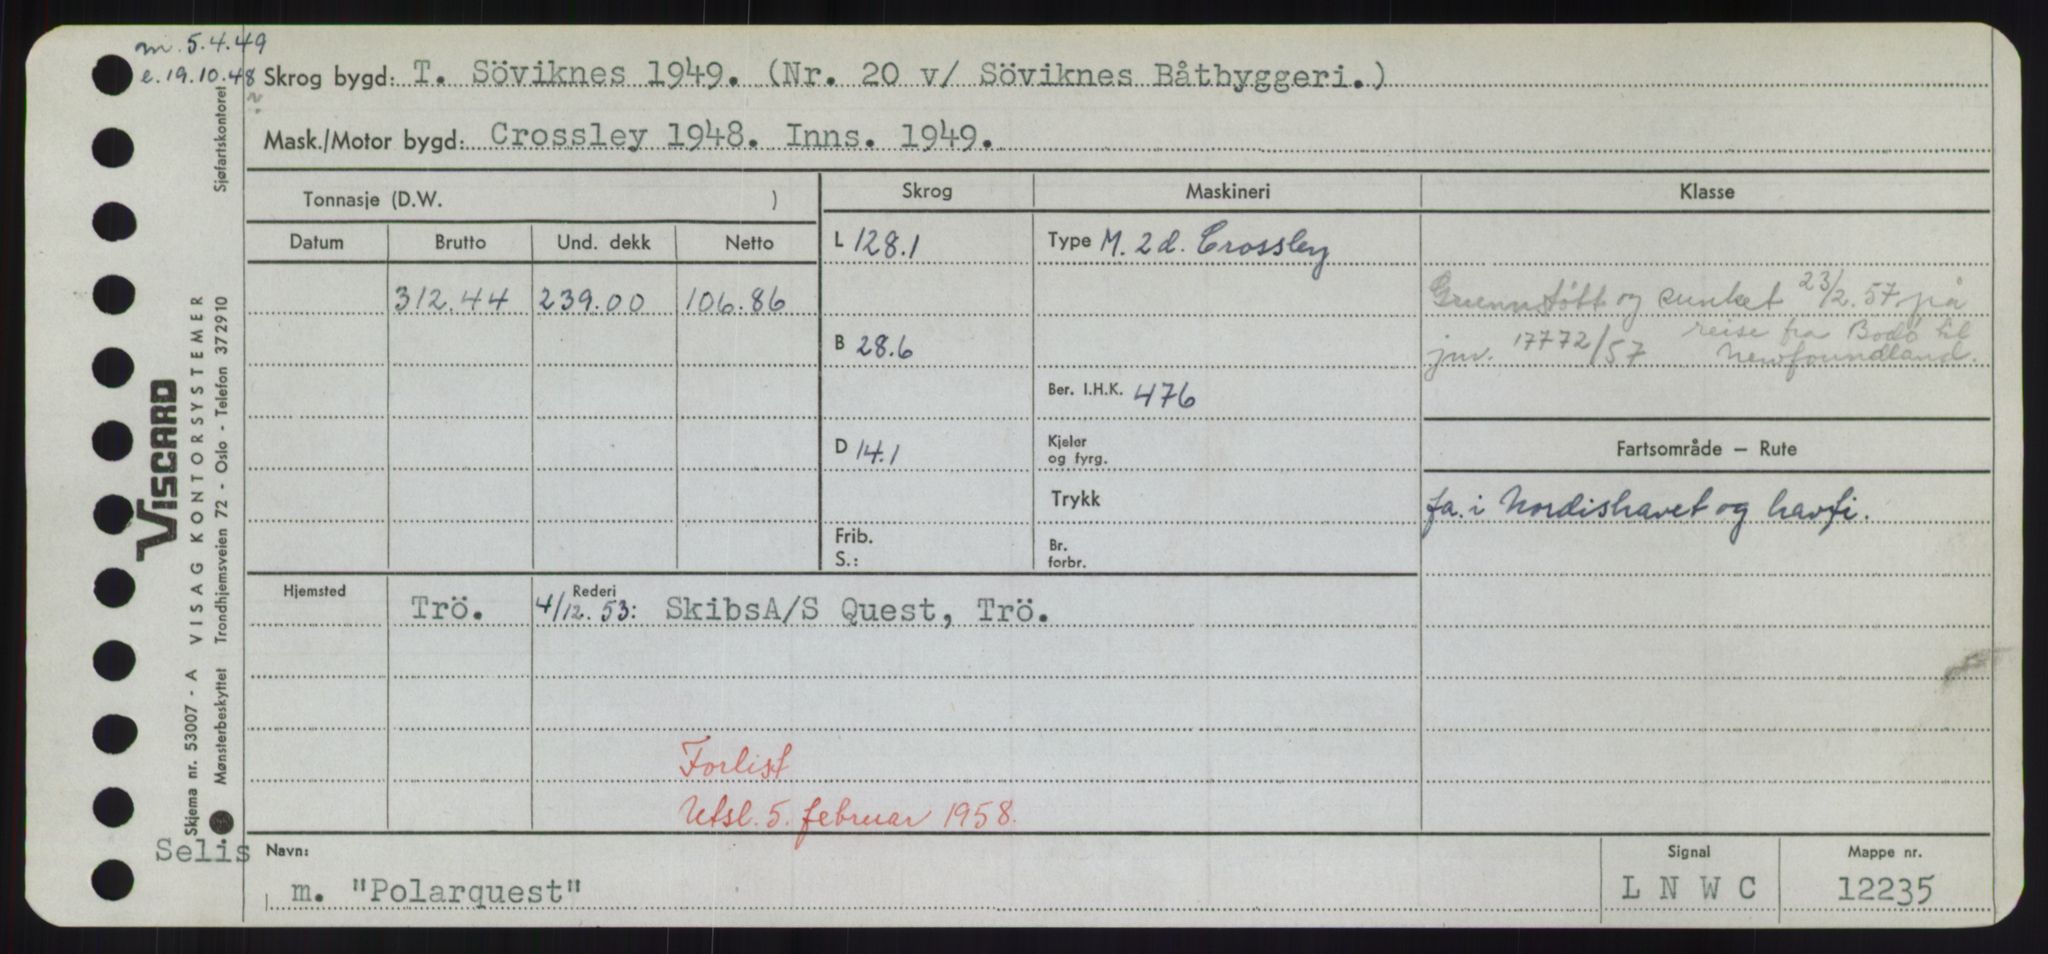 m. 5.4.49
e. 19.10.48
Skrog bygd: T. Söviknes 1949. (Nr. 20 v/ Söviknes Båtbyggeri.)
Mask./Motor bygd: Crossley 1948. Inns. 1949.
Tonnasje (D.W. )
Skrog
Maskineri
Klasse
Datum
Brutto
Und. dekk
Netto
312.44 239.00 106.86
L 128.1
B 28.6
D 14.1
Frib.
S.:
Type M. 2 d. Crossley
Ber. I.H.K. 476
Kjeler
og fyrg.
Trykk
Br.
forbr.
Grunnstött og sunket 23/2.57 på
reise fra Bodø til
jnr. 17772/57 Newfoundland.
Fartsområde – Rute
fa. i Nordishavet og havfi.
Hjemsted
Trö.
Rederi
4/12.53: SkibsA/S Quest, Trö.
Forlist
Utsl. 5. februar 1958.
Selis
Navn:
m. "Polarquest"
Signal
L N W C
Mappe nr.
12235
VISCARD
Skjema nr. 53007 - A VISAG KONTORSYSTEMER
Mønsterbeskyttet Trondhjemsveien 72 - Oslo - Telefon 372910
Sjøfartskontoret